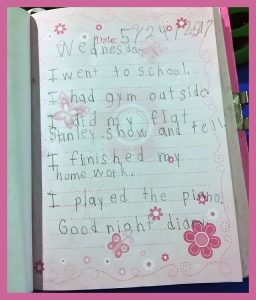 Date: 5/24/2017
Wednesday
I went to school.
I had gym outside.
I did my flat
Stanley show and tell
I finished my
home work.
I played the piano.
Good night diary